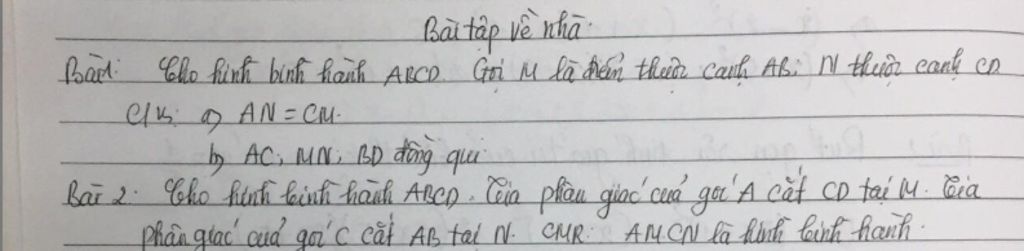 Bài tập về nhà.
Bài 1: Cho hình bình hành ABCD. Gọi M là điểm thuộc cạnh AB; N thuộc cạnh CD
C/M: a) AN = CM.
b) AC, MN, BD đồng qui.
Bài 2: Cho hình bình hành ABCD. Tia phân giác của góc A cắt CD tại M. Tia
phân giác của góc C cắt AB tại N. CMR: AMCN là hình bình hành.